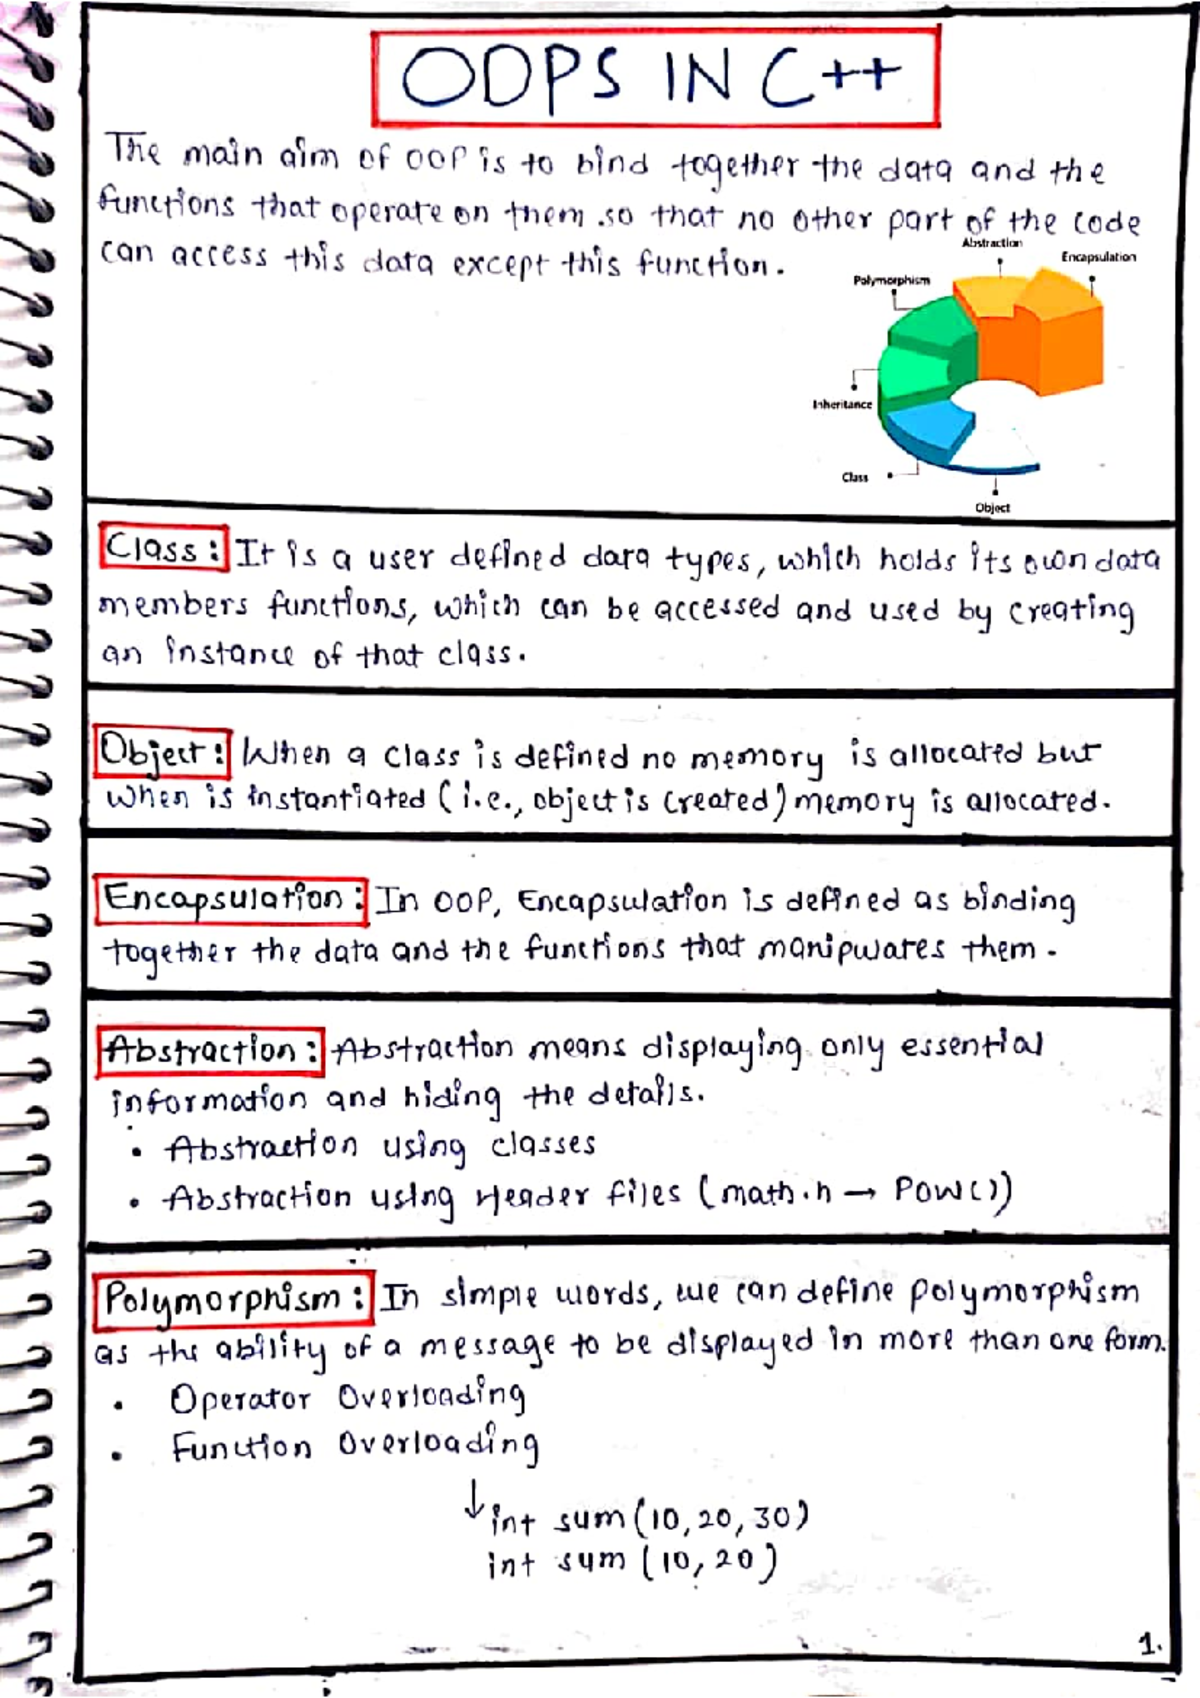 OOPS IN C++
The main aim of OOP is to bind together the data and the
functions that operate on them so that no other part of the code
can access this data except this function.
Abstraction
Encapsulation
Polymorphism
Inheritance
Class
Object
Class: It is a user defined dara types, which holds its own data
members functions, which can be accessed and used by creating
an instance of that class.
Object: When a class is defined no memory is allocated but
when is instantiated (i.e., object is created) memory is allocated.
Encapsulation: In OOP, Encapsulation is defined as binding
together the data and the functions that manipulates them.
Abstraction: Abstraction means displaying only essential
information and hiding the details.
• Abstraction using classes
• Abstraction using Header files (math.h → POW())
Polymorphism: In simple words, we can define polymorphism
as the ability of a message to be displayed in more than one form.
• Operator Overloading
• Function Overloading
↓ int sum (10, 20, 30)
int sum (10, 20)
1.